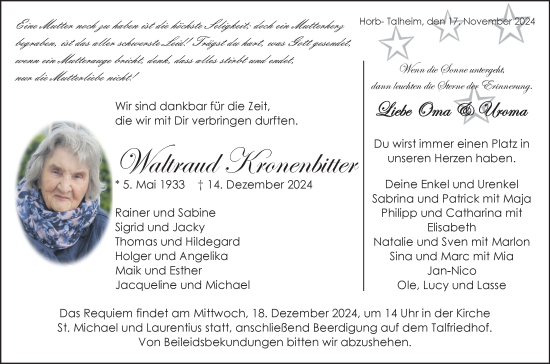 Eine Mutter noch zu haben ist die höchste Seligkeit, doch ein Mutterherz
begraben, ist das aller schwerste Leid! Trägst du hart, was Gott gesendet,
wenn ein Mutterauge bricht, denk, dass alles stirbt und endet,
nur die Mutterliebe nicht!
Wir sind dankbar für die Zeit,
die wir mit Dir verbringen durften.
Waltraud Kronenbitter
* 5. Mai 1933 † 14. Dezember 2024
Rainer und Sabine
Sigrid und Jacky
Thomas und Hildegard
Holger und Angelika
Maik und Esther
Jacqueline und Michael
Horb- Talheim, den 17. November 2024
Wenn die Sonne untergeht,
dann leuchten die Sterne der Erinnerung.
Liebe Oma & Uroma
Du wirst immer einen Platz in
unseren Herzen haben.
Deine Enkel und Urenkel
Sabrina und Patrick mit Maja
Philipp und Catharina mit
Elisabeth
Natalie und Sven mit Marlon
Sina und Marc mit Mia
Jan-Nico
Ole, Lucy und Lasse
Das Requiem findet am Mittwoch, 18. Dezember 2024, um 14 Uhr in der Kirche
St. Michael und Laurentius statt, anschließend Beerdigung auf dem Talfriedhof.
Von Beileidsbekundungen bitten wir abzusehen.